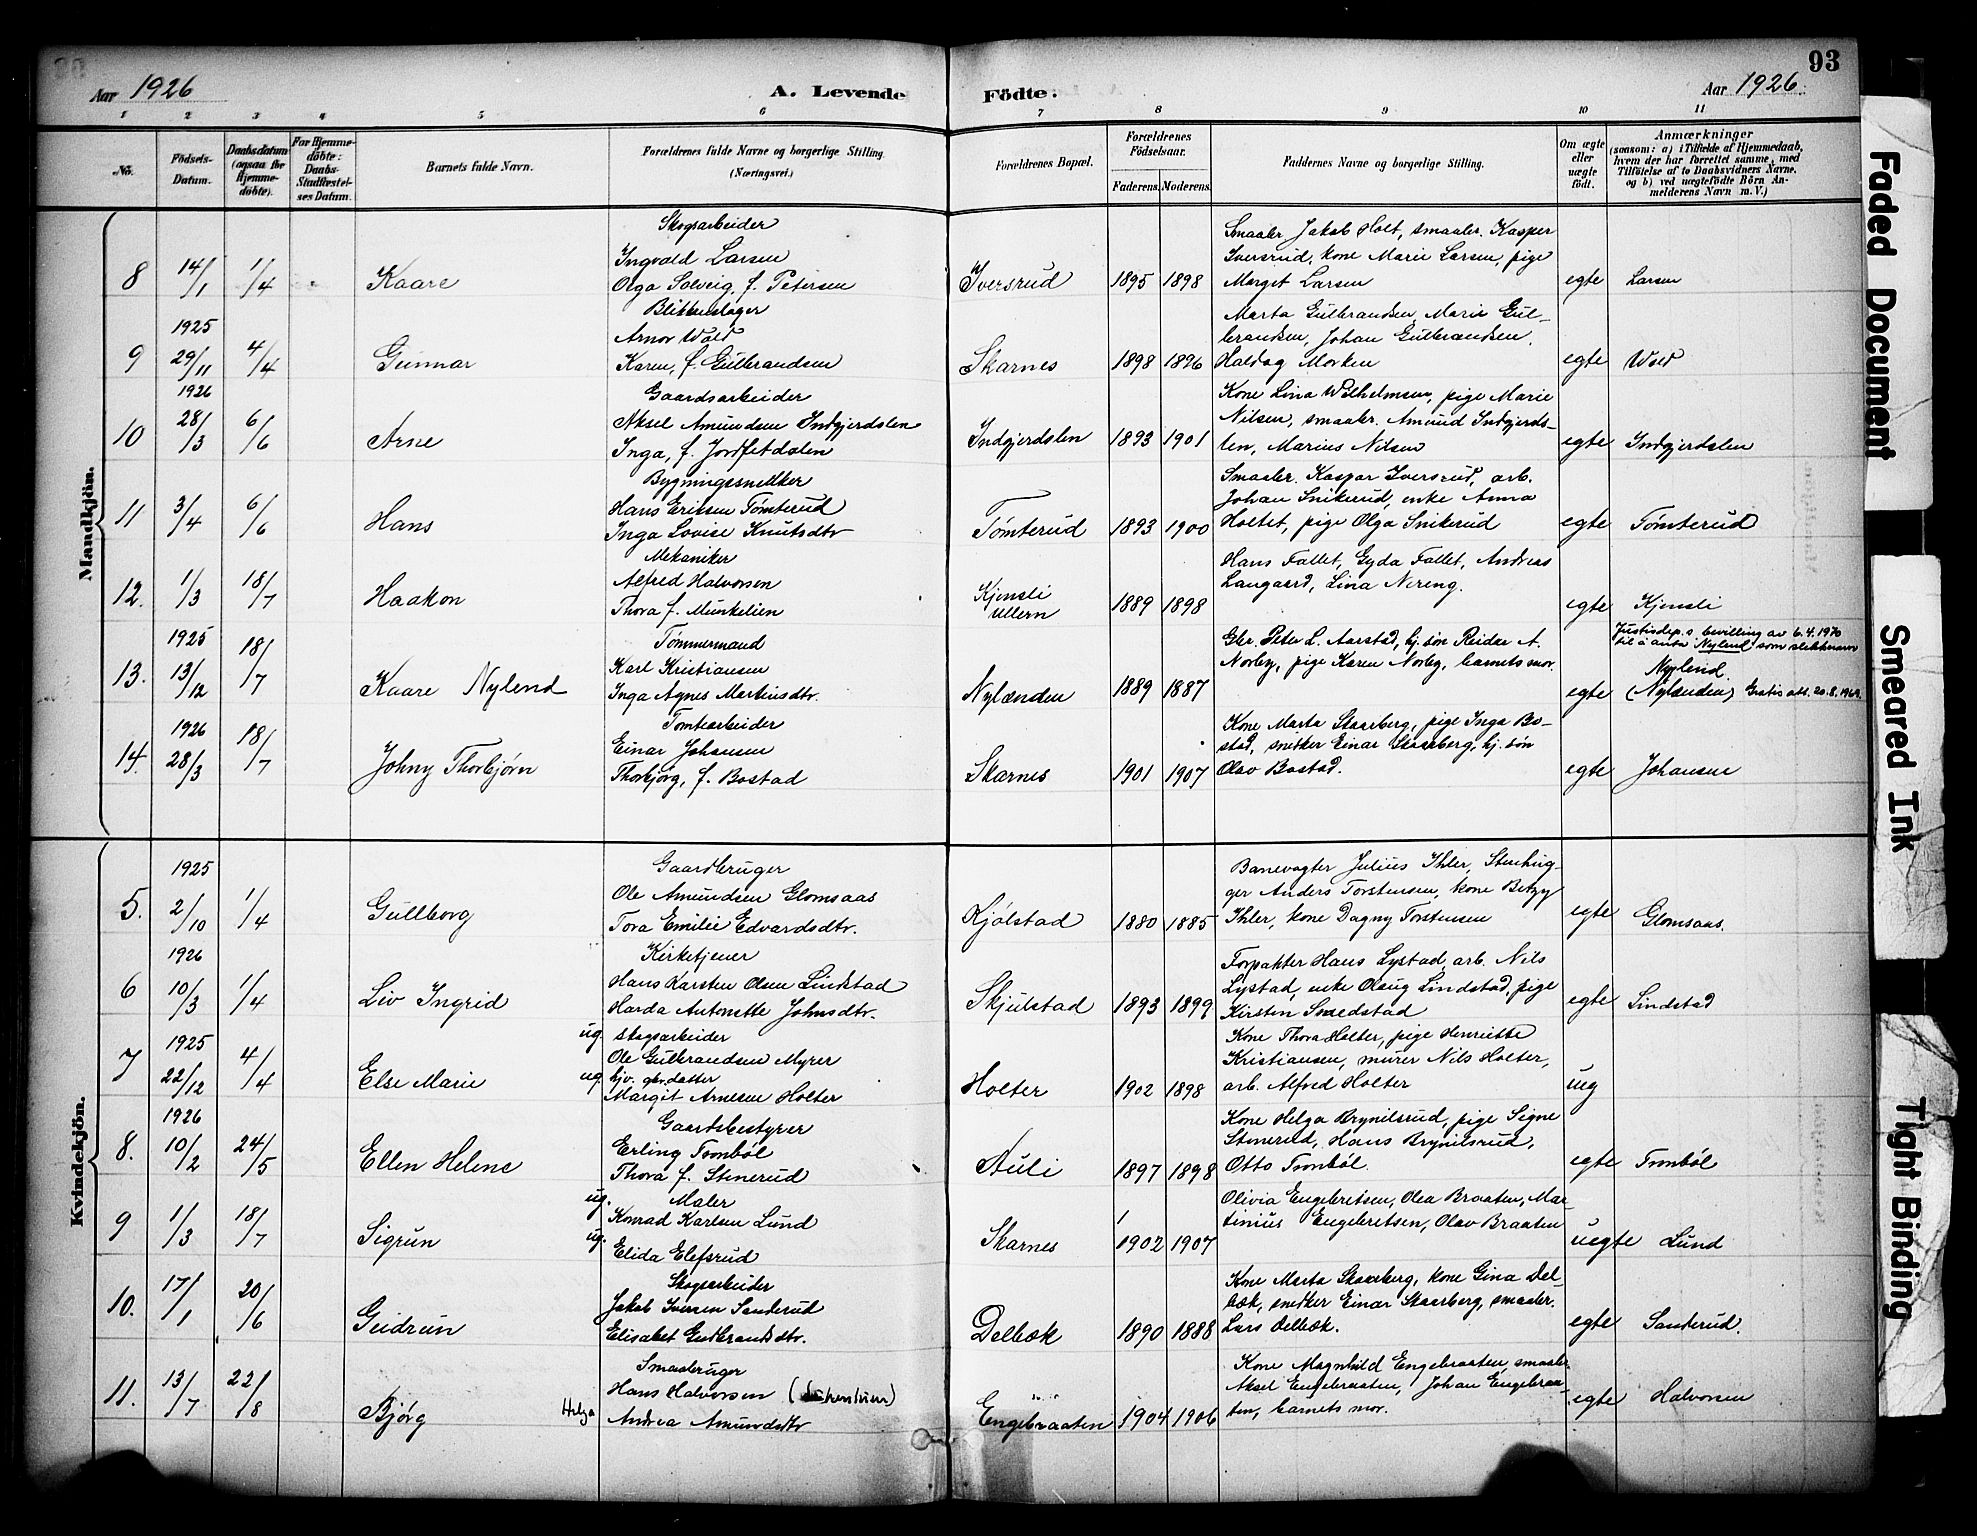 93
Aar 1926
A. Levende Födte.
Aar 1926.
1 2 3 4 5 6 7 8 9 10 11
No.
Födsels-
Datum.
Daabsdatum
(ogsaa for
Hjemme-
döbte).
For Hjemme-
döbte:
Daabs-
Stadfæstel-
ses Datum.
Barnets fulde Navn.
Forældrenes fulde Navne og borgerlige Stilling
(Næringsvei.)
Forældrenes Bopæl.
Forældrenes
Födselsaar.
Faderens. Moderens.
Faddernes Navne og borgerlige Stilling.
Om ægte
eller
uægte
født.
Anmærkninger
(saasom: a) i Tilfælde af Hjemmedaab,
hvem der har forrettet samme, med
Tilföielse af to Daabsvidners Navne,
og b) ved uægtefödte Börn An-
melderens Navn m. V.)
Mandkjön.
8 14/1 1/4 Kaare
Skogsarbeider
Ingvald Larsen
Olga Solveig, f. Petersen
Iversrud 1895 1898
Smaabr. Jakob Holt, smaabr. Kasper
Iversrud, kone Marie Larsen, pige
Marget Larsen
egte Larsen
1925
9 29/11 4/4 Gunnar
Blikkenslager
Arnor Wold
Karen, f. Gulbrandsen
Skarnes 1898 1896
Marta Gulbrandsen, Marie Gul-
brandsen, Johan Gulbrandsen,
Haldag Morken
egte Wold
1926
10 28/3 6/6 Arne
Gaardsarbeider
Aksel Amundsen Indgjerdslen
Inga, f. Jordfetdalen
Indgjerdslen 1893 1901
Kone Lina Wilhelmsen, pige Marie
Nilsen, smaabr. Amund Indgjerds-
len, Marius Nilsen
egte Indgjerdslen
11 3/4 6/6 Hans
Bygningssnekker
Hans Eriksen Tömterud
Inga Lovise Knutsdtr
Tömterud 1893 1900
Smaabr. Kaspar Iversrud, arb.
Johan Snikerud, enke Anna
Holtet, pige Olga Snikerud
egte Tömterud
12. 1/3 18/7 Haakon
Mekaniker
Alfred Halvorsen
Thora f. Munkelien
Kjensli
Ullern
1889 1898
Hans Fallet, Gyda Fallet, Andreas
Langaard, Lina Nereng.
egte Kjensli
1925
13. 13/12 18/7 Kaare Nylend
Tømmermand
Karl Kristiansen
Inga Agnes Martinsdtr.
Nylænden 1889 1887
Gbr. Peter L. Aarstad, hj. søn Reidar A.
Norby, pige Karen Norby, barnets mor.
egte
Justisdep.s. bevilling av 6.4.1970
til å anta Nylend som slektsnavn
Nylend.
(Nylænden) Gratis att. 20.8.1969.
1926
14. 28/3 18/7 Johny Thorbjørn
Tomtearbeider
Einar Johansen
Thorbjørg, f. Bostad
Skarnes 1901 1907
Kone Marta Skaarberg, pige Inga Bo-
stad, snekker Einar Skaarberg, hj. søn
Olav Bostad.
egte Johansen
Kvindekjön.
1925
5. 2/10 1/4 Gullborg
Gaardbruger
Ole Amundsen Glomsaas
Tora Emilie Edvardsdtr.
Kjölstad 1880 1885
Banevogter Julius Ihler, Stenhug-
ger Anders Torstensen, kone Betzy
Ihler, kone Dagny Torstensen
egte Glomsaas.
1926
6 10/3 1/4 Liv Ingrid
Kirketjener
Hans Karsten Olsen Lindstad
Harda Antonette Johnsdtr.
Skjulstad 1893 1899
Forpakter Hans Lystad, arb. Nils
Lystad, enke Olaug Lindstad, pige
Kirsten Smedstad
egte Lindstad
1925
7 22/12 4/4 Else Marie
ug. skogsarbeider
Ole Gulbrandsen Myrer
ug. hjv. gbr. datter
Margit Arnesen Holter
Holter 1902 1898
Kone Thora Holter, pige Henriette
Kristiansen, murer Nils Holter,
arb. Alfred Holter
ueg
1926
8. 10/2 24/5 Ellen Helene
Gaardsbestyrer
Erling Trombøl
Thora f. Stenerud
Auli 1897 1898
Kone Helga Brynilsrud, pige Signe
Stenerud, Hans Brynilsrud,
Otto Trombøl.
egte Trombøl
9 1/3 18/7 Sigrun
ug. Maler
Konrad Karlsen Lund
ug.
Elida Elefsrud
Skarnes 1902 1907
Olivia Engebretsen, Olea Braaten, Mar-
tinius Engebretsen, Olav Braaten
uegte Lund
10. 17/1 20/6 Gudrun
Skogsarbeider
Jakob Iversen Sanderud
Elisabet Gudbrandsdtr.
Delbæk 1890 1888
Kone Marta Skaarberg, kone Gina Del-
bæk, snekker Einar Skaarberg, smaabr.
Lars Delbæk.
egte Sanderud.
11. 13/7 22/8 Bjørg
Smaabruger
Hans Halvorsen
Helga Andrea Amundsdtr
Engebraaten 1904 1906
Kone Magnhild Engebraaten, smaabr.
Aksel Engebraaten, Johan Engebraa-
ten, barnets mor.
egte Halvorsen
Faded Document
Smeared Ink
Tight Binding